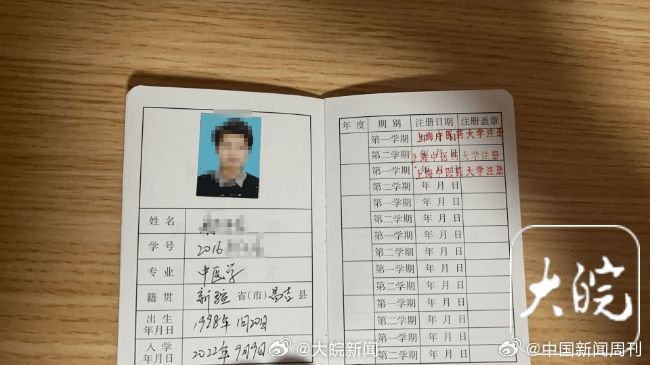 姓名
学号 2016
专业 中医学
籍贯 新疆 省(市) 昌吉 县
出生年月日 1998年1月20日
入学年月日 2022年9月9日
年度 期别 注册日期 注册盖章
第一学期 年 月 日 上海中医药大学注册
第二学期 年 月 日 上海中医药大学注册
第一学期 年 月 日 上海中医药大学注册
第二学期 年 月 日
第一学期 年 月 日
第二学期 年 月 日
第一学期 年 月 日
第二学期 年 月 日
第一学期 年 月 日
第二学期 年 月 日
第一学期 年 月 日
第二学期 年 月 日
大皖
@大皖新闻 @中国新闻周刊